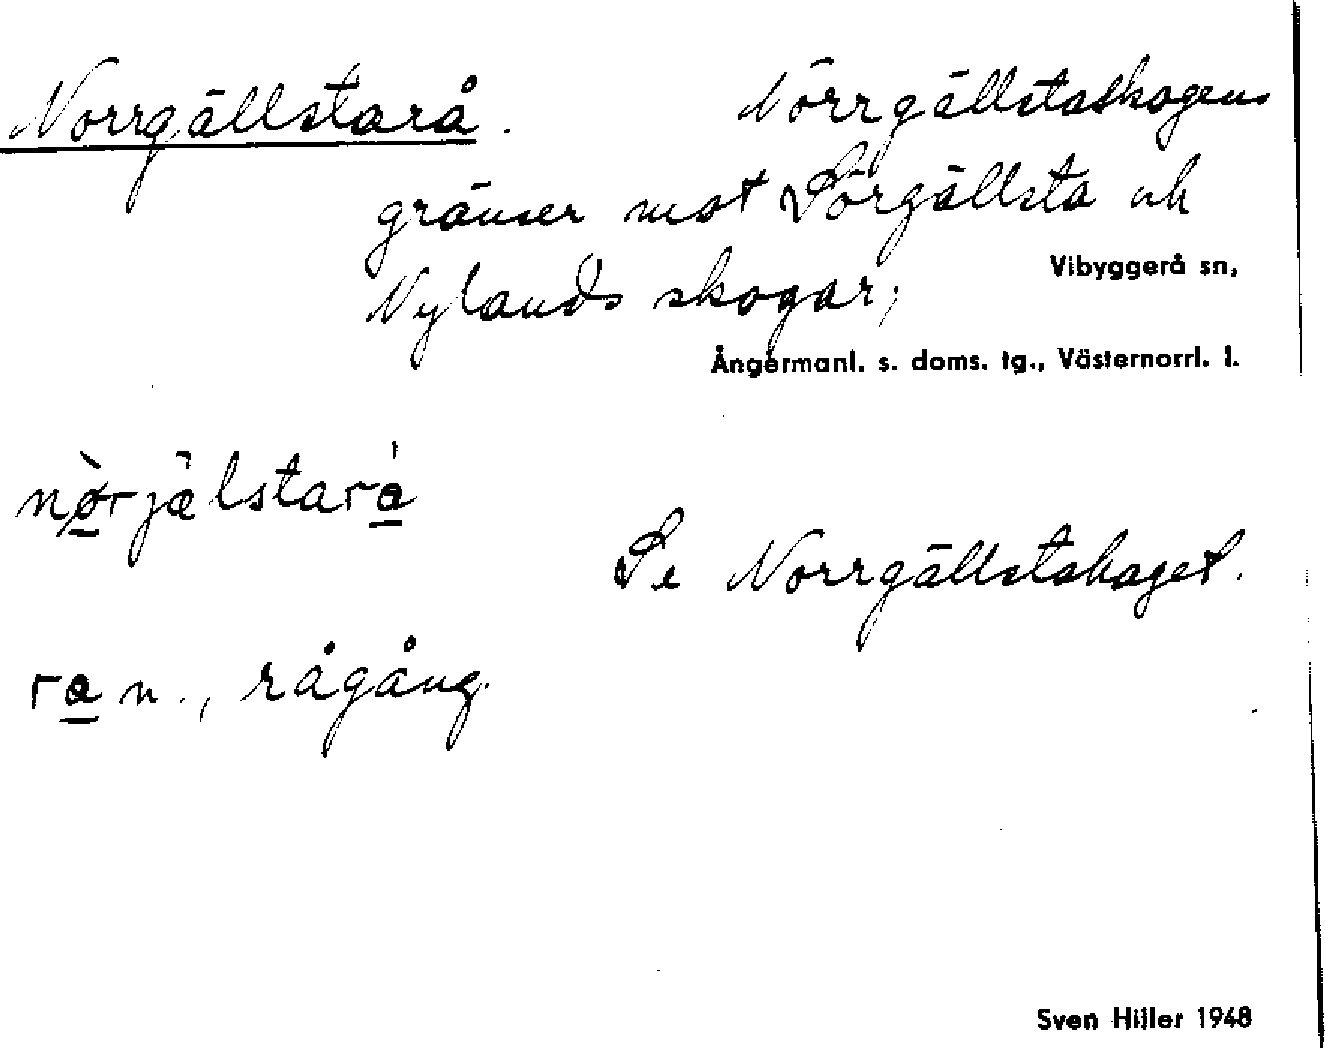 Norrgällstarå. Norrgällstaskogens
gränser mot Sörgällsta och
Nylands skogar;
Vibyggerå sn,
Ångermanl. s. doms. tg., Västernorrl. l.
nørjælstara
Se Norrgällstahaget.
ra n., rågång.
Sven Hiller 1948